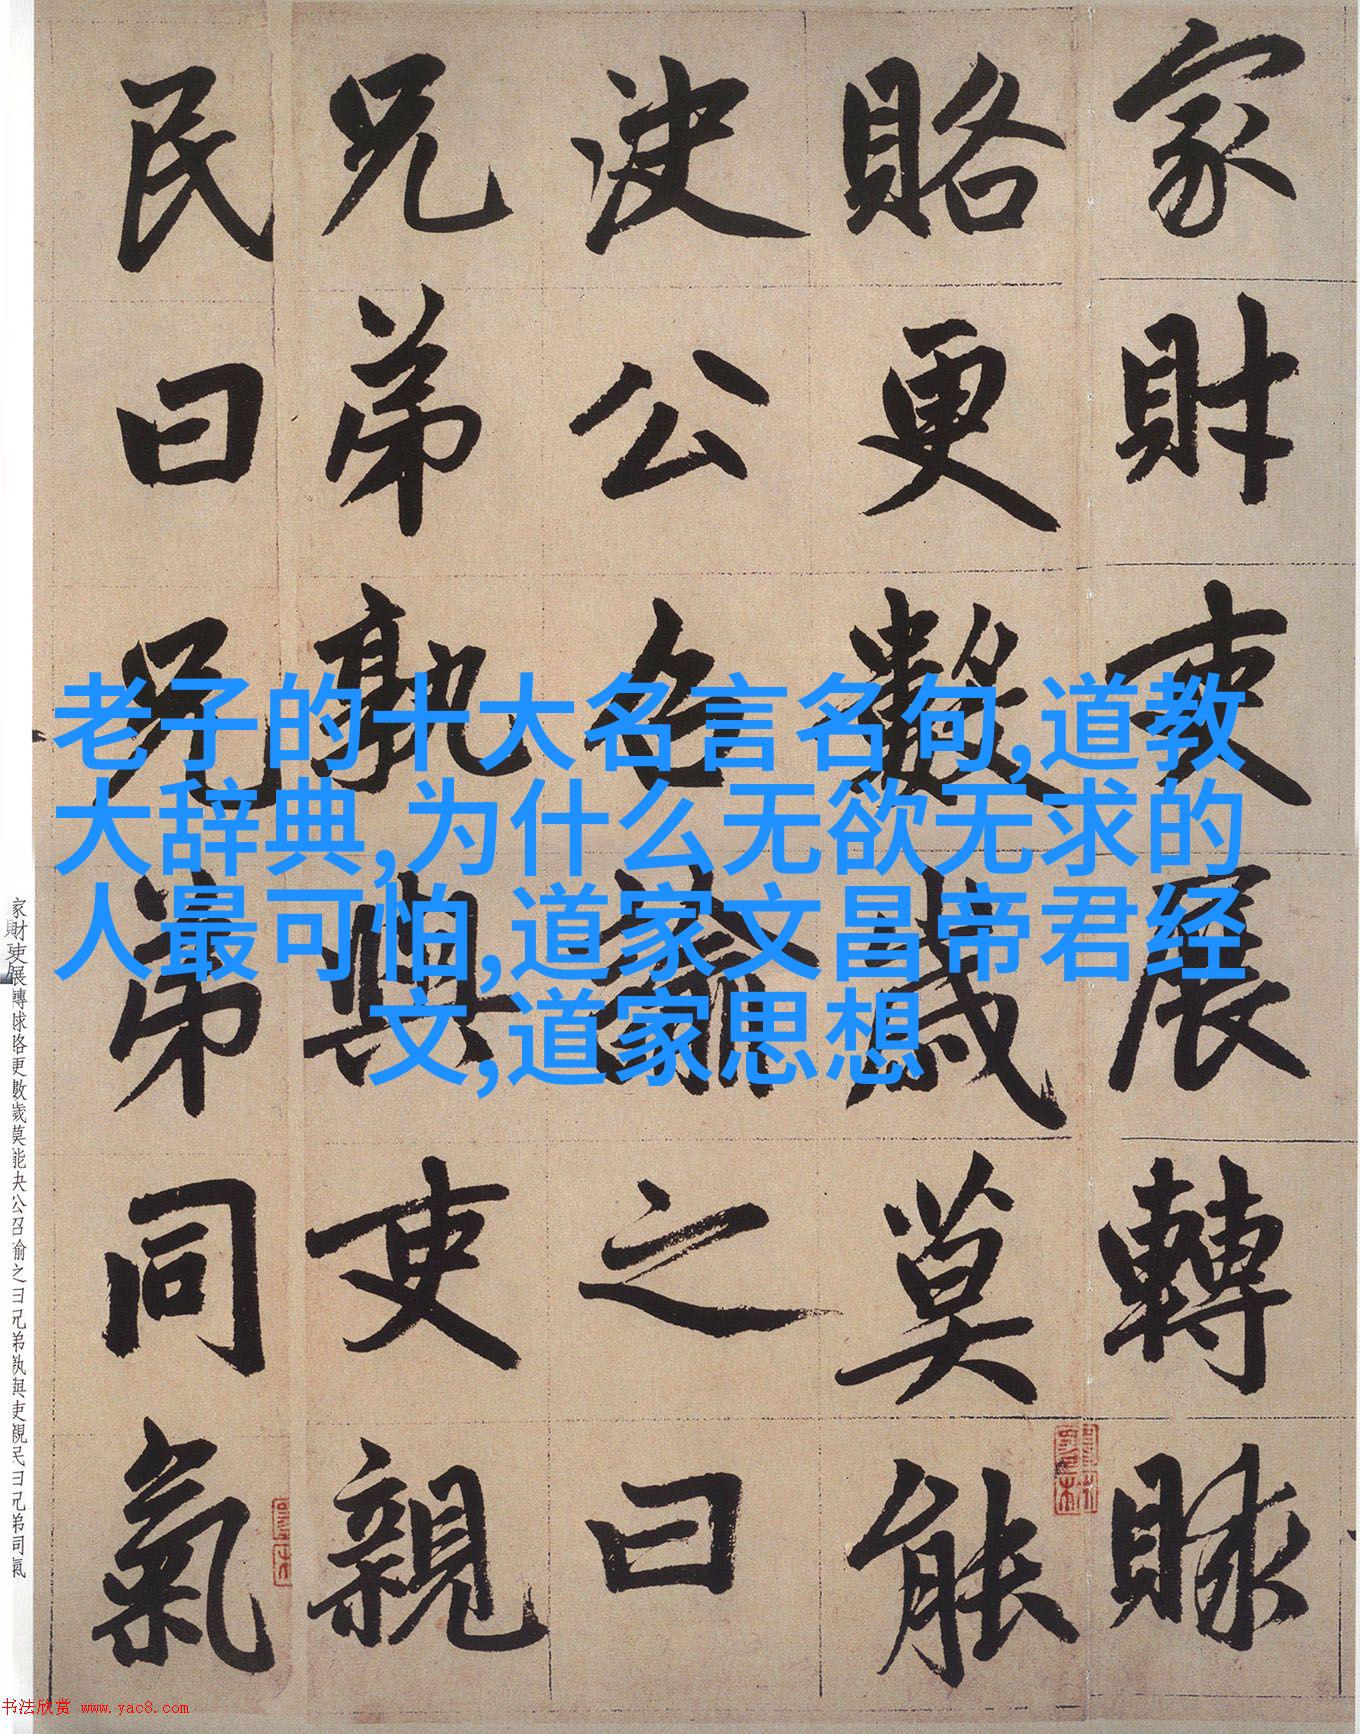 家財吏展轉賕
賂更數歲莫能
決公召諭之曰
兄弟孰與吏親
民曰兄弟同氣
老子的十大名言名句,道教
大辞典,为什么无欲无求的
人最可怕,道家文昌帝君经
文,道家思想
家財吏展轉賕賂更數歲莫能決公召諭之曰兄弟孰與吏親民曰兄弟同氣
书法欣赏 www.yac8.com